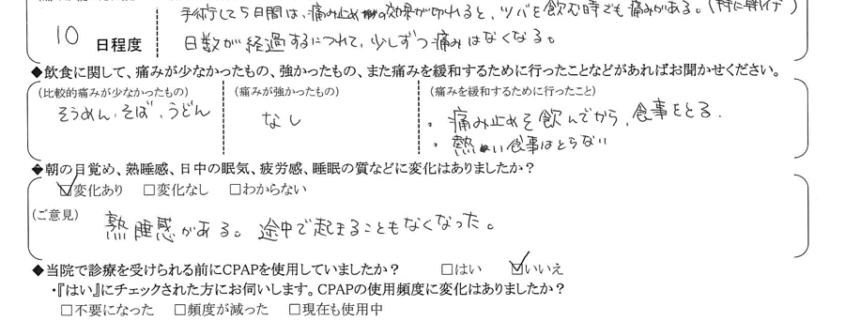 手術して5日間は、痛み止めの効果が切れると、ツバを飲む時でも痛みがある。(特に
10日程度 日数が経過するにつれて、少しずつ痛みはなくなる。
◆飲食に関して、痛みが少なかったもの、強かったもの、また痛みを緩和するために行ったことなどがあればお聞かせください。
(比較的痛みが少なかったもの) (痛みが強かったもの) (痛みを緩和するために行ったこと)
そうめん、そば、うどん なし ・痛み止めを飲んでから、食事をとる.
・熱い食事はとらない
◆朝の目覚め、熟睡感、日中の眠気、疲労感、睡眠の質などに変化はありましたか?
☑変化あり □変化なし □わからない
(ご意見) 熟睡感がある。途中で起きることもなくなった。
◆当院で診療を受けられる前にCPAPを使用していましたか? □はい ☑いいえ
・『はい』にチェックされた方にお伺いします。CPAPの使用頻度に変化はありましたか?
□不要になった □頻度が減った □現在も使用中